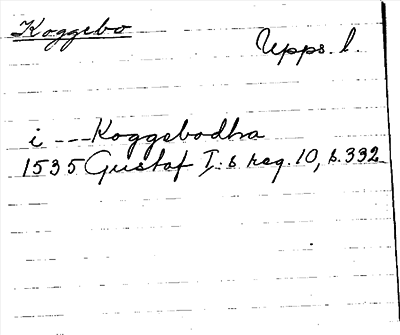 Koggebo
Upps. l.
i --- Koggebodha
1535 Gustaf I:s reg. 10, s. 332